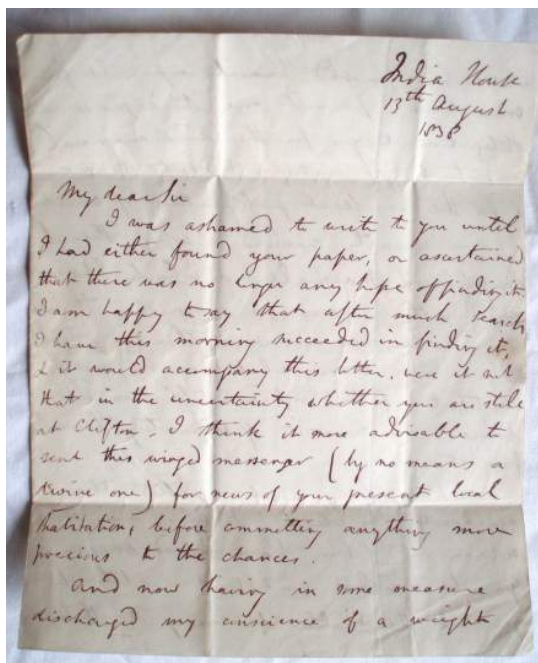 India House
13th August
1838
My dear Sir
I was ashamed to write to you until
I had either found your paper, or ascertained
that there was no longer any hope of finding it.
I am happy to say that after much search
I have this morning succeeded in finding it,
& it would accompany this letter, were it not
that in the uncertainty whether you are still
at Clifton, I think it more advisable to
send this winged messenger (by no means a
divine one) for news of your present local
habitation, before committing anything more
precious to the chances.
And now having in some measure
discharged my conscience of a weight